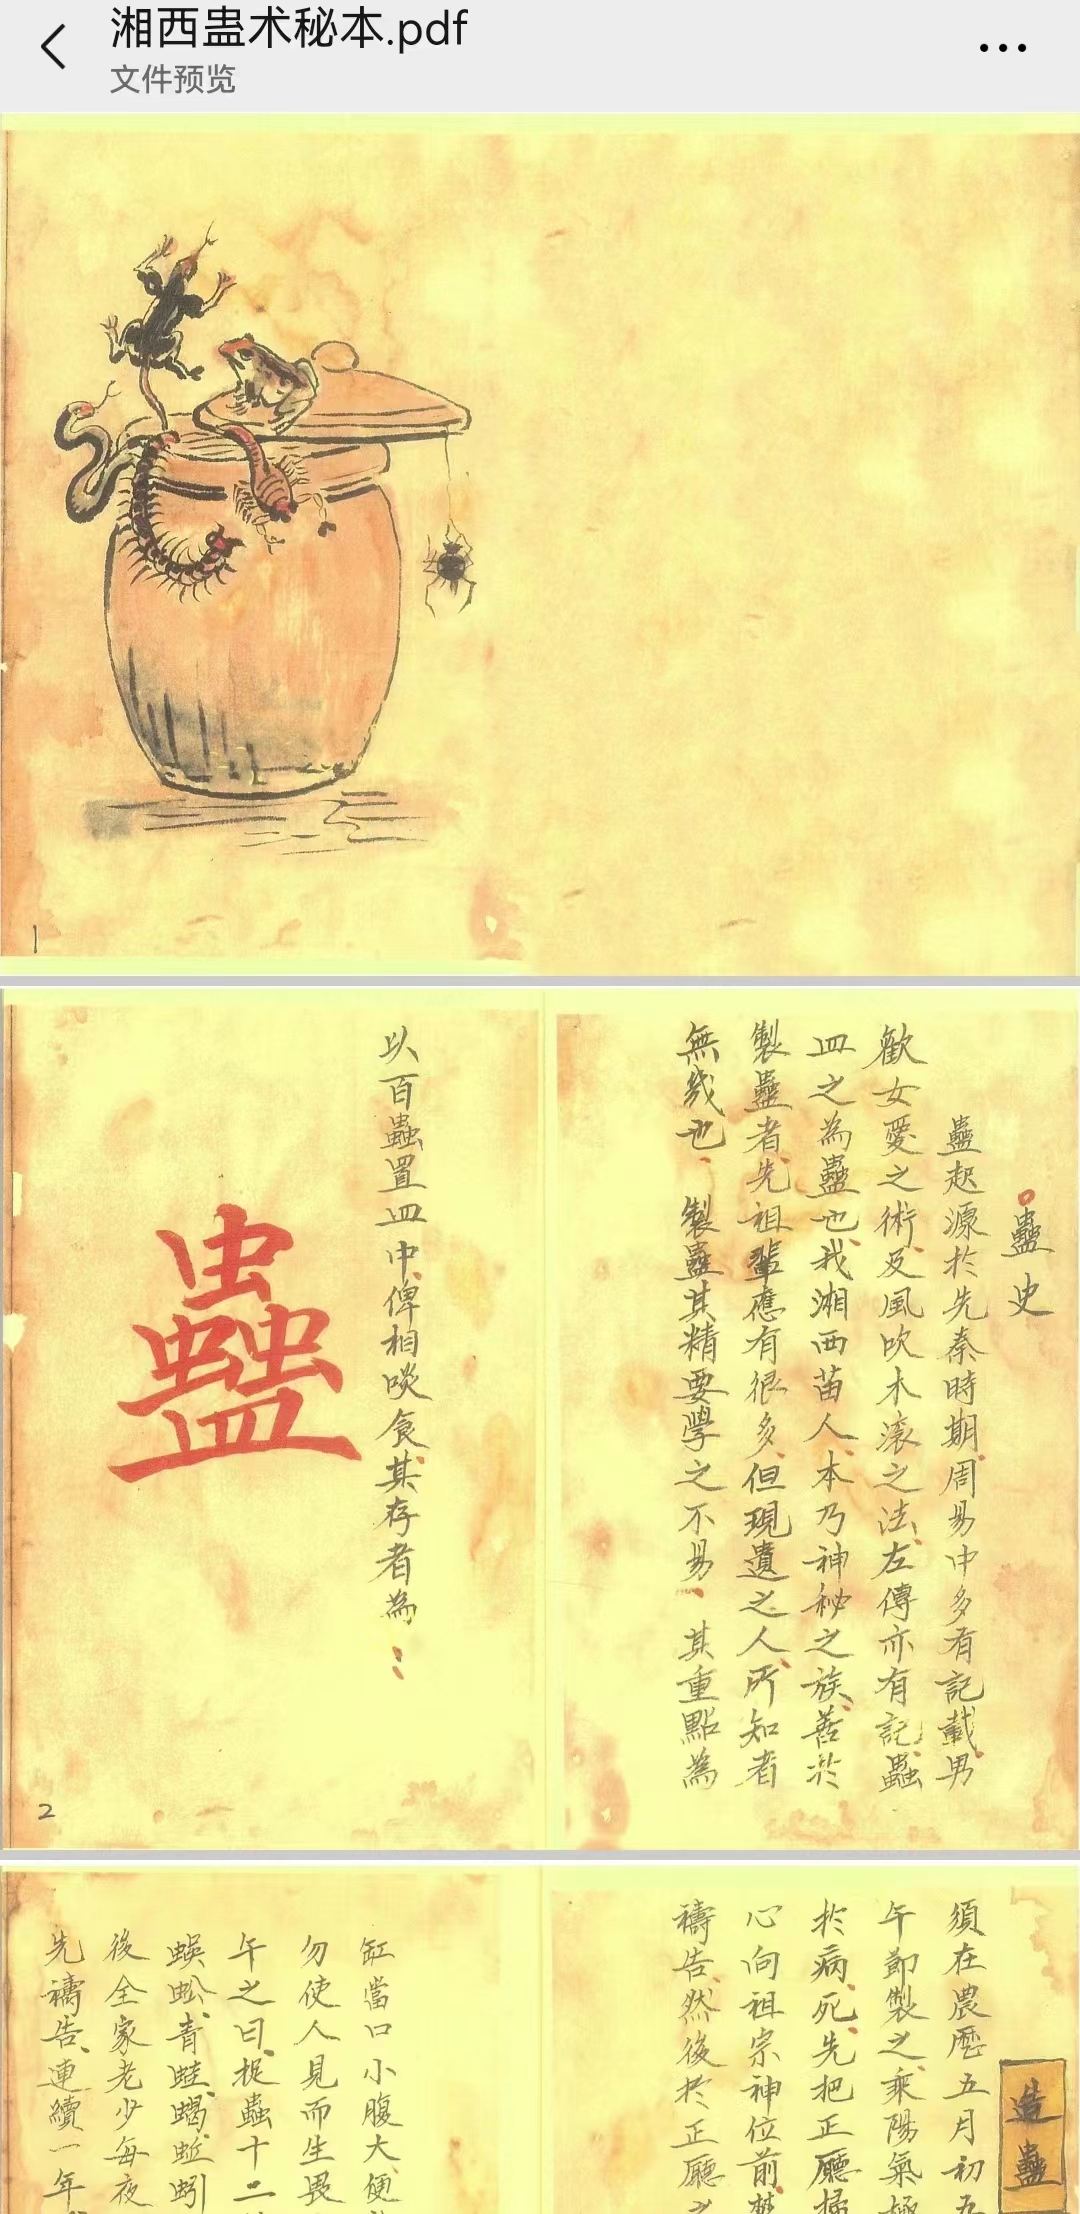 湘西蛊术秘本.pdf
文件预览
1
蠱史
蠱起源於先秦時期周易中多有記載男
歡女愛之術及風吹木滚之法左傳亦有記蟲
皿之為蠱也我湘西苗人本乃神秘之族善於
製蠱者先祖輩應有很多但現遺之人所知者
無幾也 製蠱其精要學之不易 其重點為
以百蟲置皿中俾相啖食其存者為：
蠱
2
造蠱
須在農曆五月初五
午節製之乘陽氣極
於病死先把正廳掃
心向祖宗神位前焚
禱告然後於正廳之
缸當口小腹大便
勿使人見而生畏
午之日捉蟲十二
蜈蚣青蛙蝎蚯蚓
後全家老少每夜
先禱告連續一年